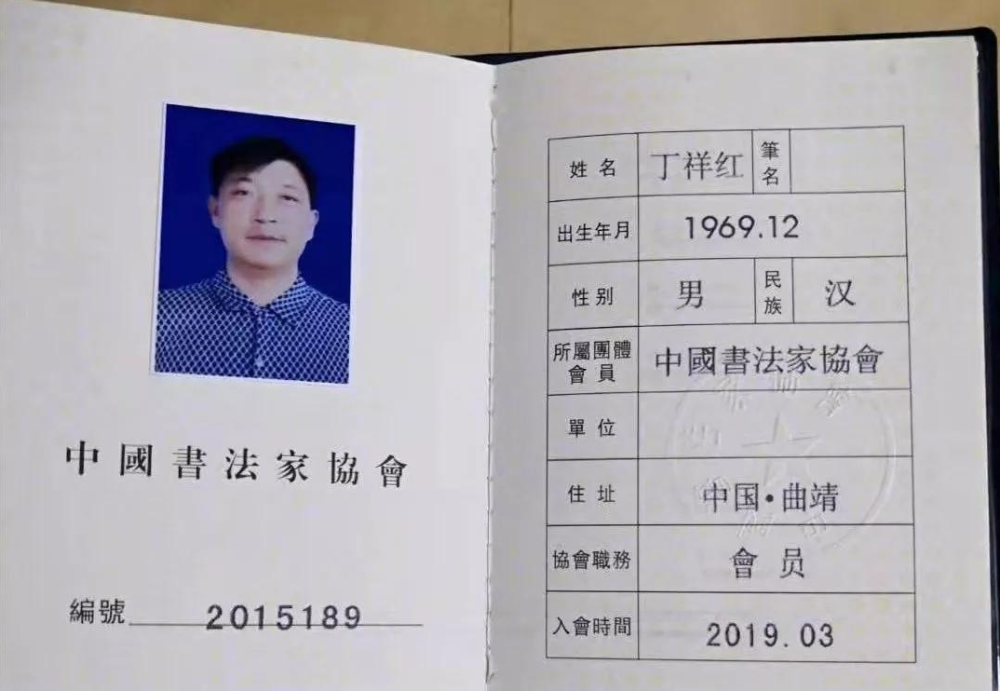 中國書法家協會
編號 2015189
姓名 丁祥红 筆名
出生年月 1969.12
性别 男 民族 汉
所屬團體會員 中國書法家協會
單位
住址 中国·曲靖
協會職務 會员
入會時間 2019.03